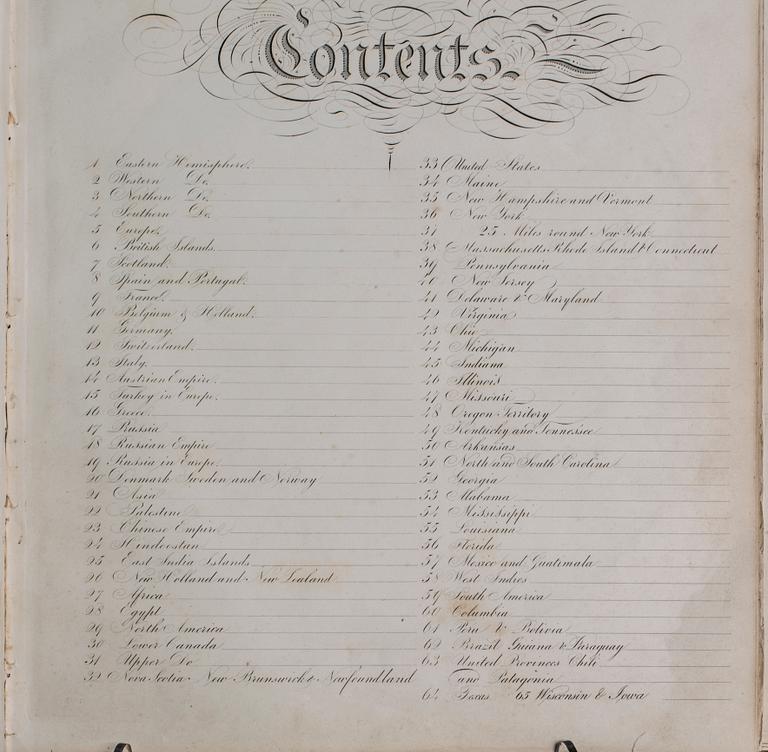 Contents.
1 Eastern Hemisphere.
2 Western Do.
3 Northern Do.
4 Southern Do.
5 Europe.
6 British Islands.
7 Scotland.
8 Spain and Portugal.
9 France.
10 Belgium & Holland.
11 Germany.
12 Switzerland.
13 Italy.
14 Austrian Empire.
15 Turkey in Europe.
16 Greece.
17 Russia
18 Russian Empire
19 Russia in Europe
20 Denmark Sweden and Norway
21 Asia
22 Palestine
23 Chinese Empire
24 Hindoostan
25 East India Islands
26 New Holland and New Zealand
27 Africa
28 Egypt
29 North America
30 Lower Canada
31 Upper Do
32 Nova Scotia New Brunswick & Newfoundland
33 United States
34 Maine
35 New Hampshire and Vermont
36 New York
37 25 Miles round New York
38 Massachusetts Rhode Island & Connecticut
39 Pennsylvania
40 New Jersey
41 Delaware & Maryland
42 Virginia
43 Ohio
44 Michigan
45 Indiana
46 Illinois
47 Missouri
48 Oregon Territory
49 Kentucky and Tennessee
50 Arkansas
51 North and South Carolina
52 Georgia
53 Alabama
54 Mississippi
55 Louisiana
56 Florida
57 Mexico and Guatimala
58 West Indies
59 South America
60 Columbia
61 Peru & Bolivia
62 Brazil Guiana & Paraguay
63 United Provinces Chili
and Patagonia
64 Texas 65 Wisconsin & Iowa